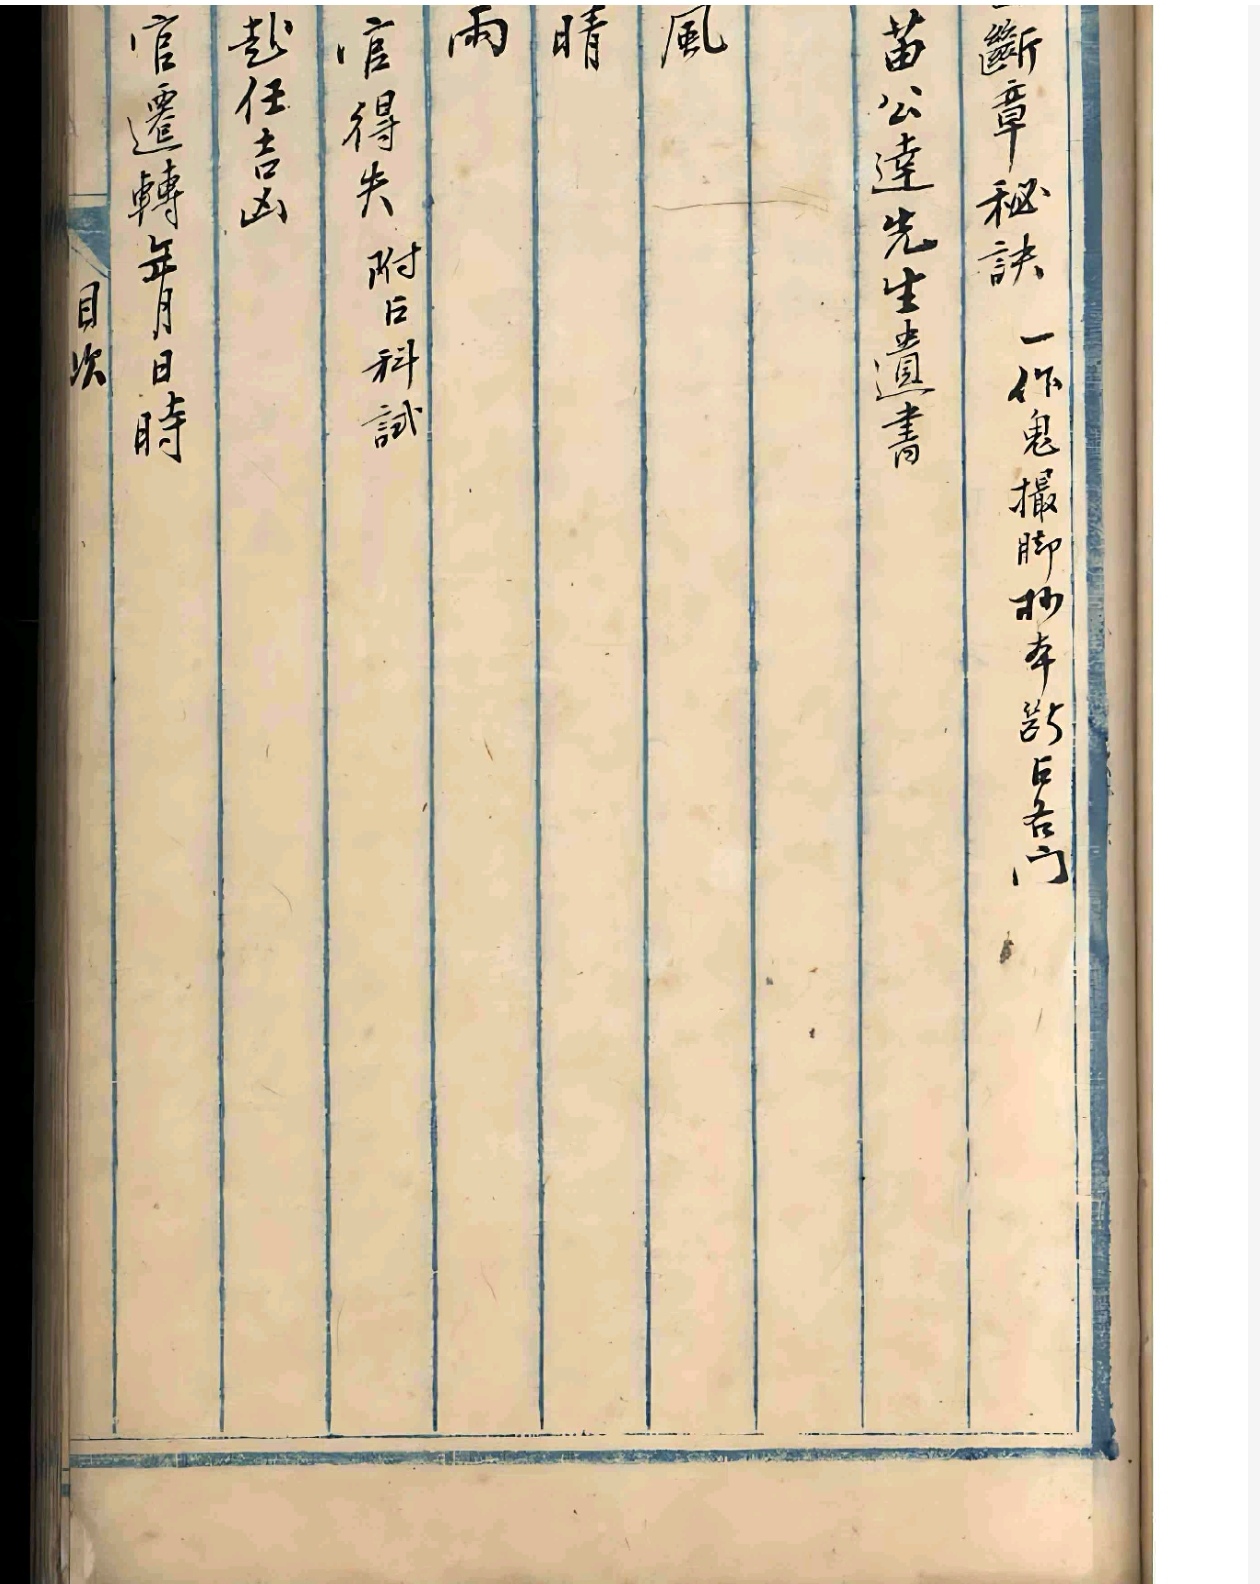 斷章秘訣 一作鬼撮脚抄本斷占各門
苗公達先生遺書
風
晴
雨
官得失 附占科試
赴任吉凶
官遷轉年月日時
目次